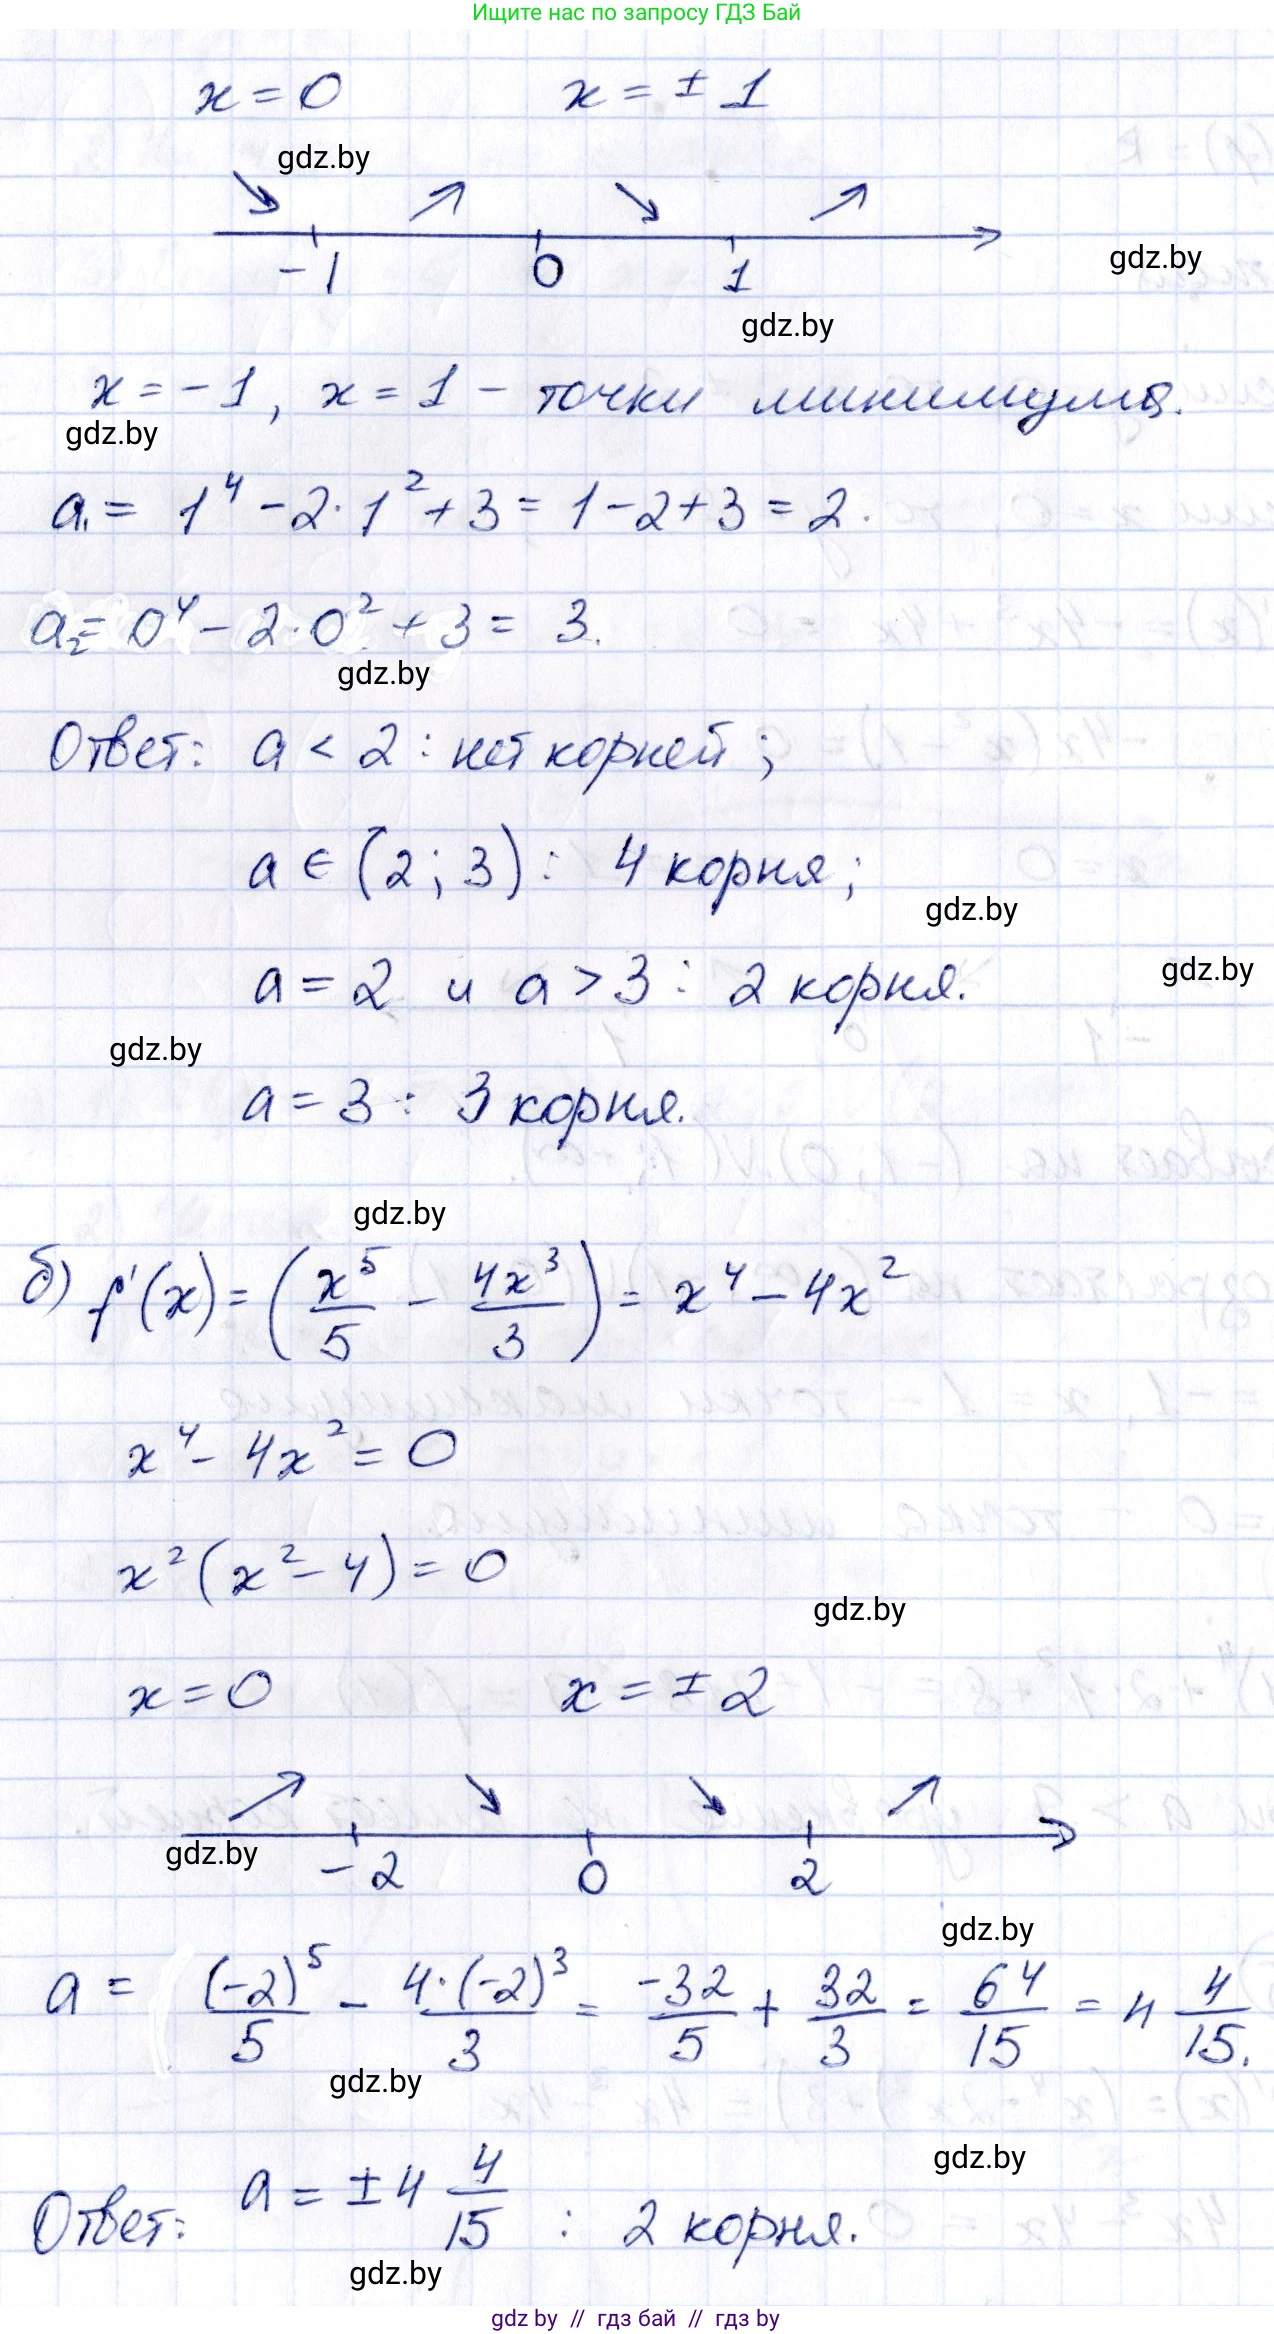 Ищите нас по запросу ГДЗ Бай
x = 0 x = ± 1
gdz.by
-1 0 1
gdz.by
gdz.by
x = -1, x = 1 - точки минимума.
gdz.by
a₁ = 1⁴ - 2·1² + 3 = 1 - 2 + 3 = 2.
a₂ = 0⁴ - 2·0² + 3 = 3.
gdz.by
Ответ: a < 2 : нет корней ;
a ∈ (2; 3) : 4 корня ;
gdz.by
a = 2 и a > 3 : 2 корня.
gdz.by
gdz.by
a = 3 : 3 корня.
gdz.by
б) f'(x) = (x⁵/5 - 4x³/3) = x⁴ - 4x²
x⁴ - 4x² = 0
x²(x² - 4) = 0
gdz.by
x = 0 x = ± 2
gdz.by
-2 0 2
gdz.by
a = (-2)⁵/5 - 4·(-2)³/3 = -32/5 + 32/3 = 64/15 = 4 4/15.
gdz.by
gdz.by
Ответ: a = ±4 4/15 : 2 корня.
gdz.by
gdz by // гдз бай // gdz by